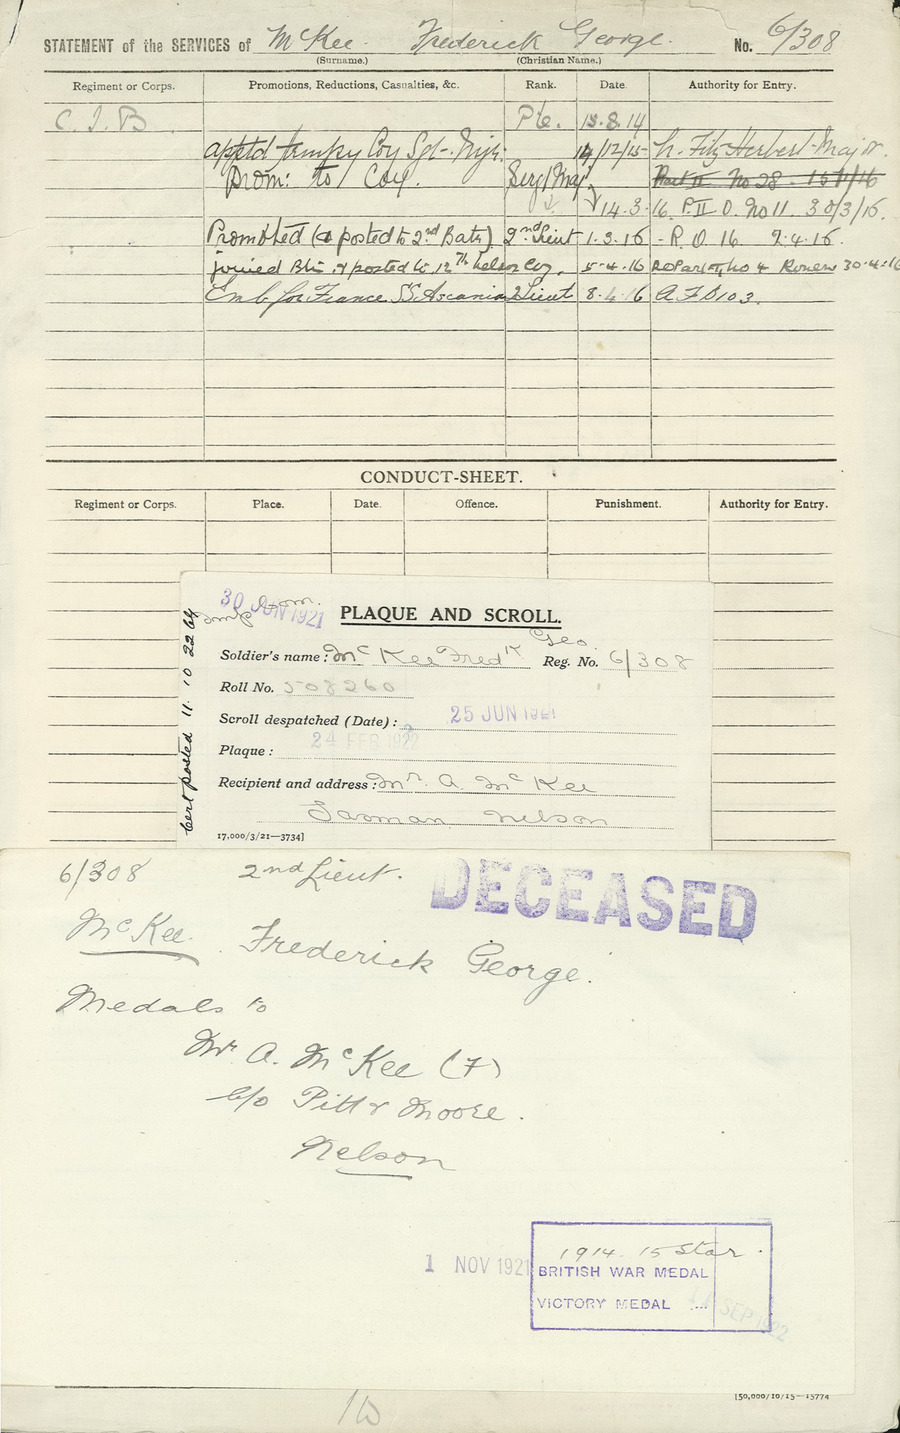 STATEMENT of the SERVICES of McKee. Frederick George. No. 6/308
(Surname.) (Christian Name.)
Regiment or Corps. Promotions, Reductions, Casualties, &c. Rank. Date. Authority for Entry.
C.I.B. Pte. 15.8.14
apptd tempy Coy Sgt-Majr: 14/12/15 Fitz Herbert Major.
Prom: to Coy. Serg/Maj. Part II No 28 - 15/1/16
14.3.16. P.II O. No 11. 30/3/16.
Promoted (& posted to 2nd Batn) 2nd Lieut 1.3.16 - R.O 16. 9.4.16.
joined Btn. & posted to 12th Nelson Coy. 5-4.16 No 4 Rouen 30.4.16
Emb for France SS Ascania 2 Lieut 8.4.16 A.F.B103.
CONDUCT-SHEET.
Regiment or Corps. Place. Date. Offence. Punishment. Authority for Entry.
30 JUN 1921
PLAQUE AND SCROLL.
Geo
Soldier's name: McKee Fredk Reg. No. 6/308
Roll No. 508260
Scroll despatched (Date): 25 JUN 1921
Plaque: 24 FEB 1922
Recipient and address: Mr. A. McKee
Tasman Nelson
17,000/3/21—3734]
Cert posted 11 10 22
6/308 2nd Lieut. DECEASED
McKee. Frederick George.
Medals to
Mr A. McKee (F)
C/o Pitt & Moore.
Nelson
1914-15 Star.
1 NOV 1921 BRITISH WAR MEDAL
VICTORY MEDAL ... SEP 1922
[50,000/10/15—15774